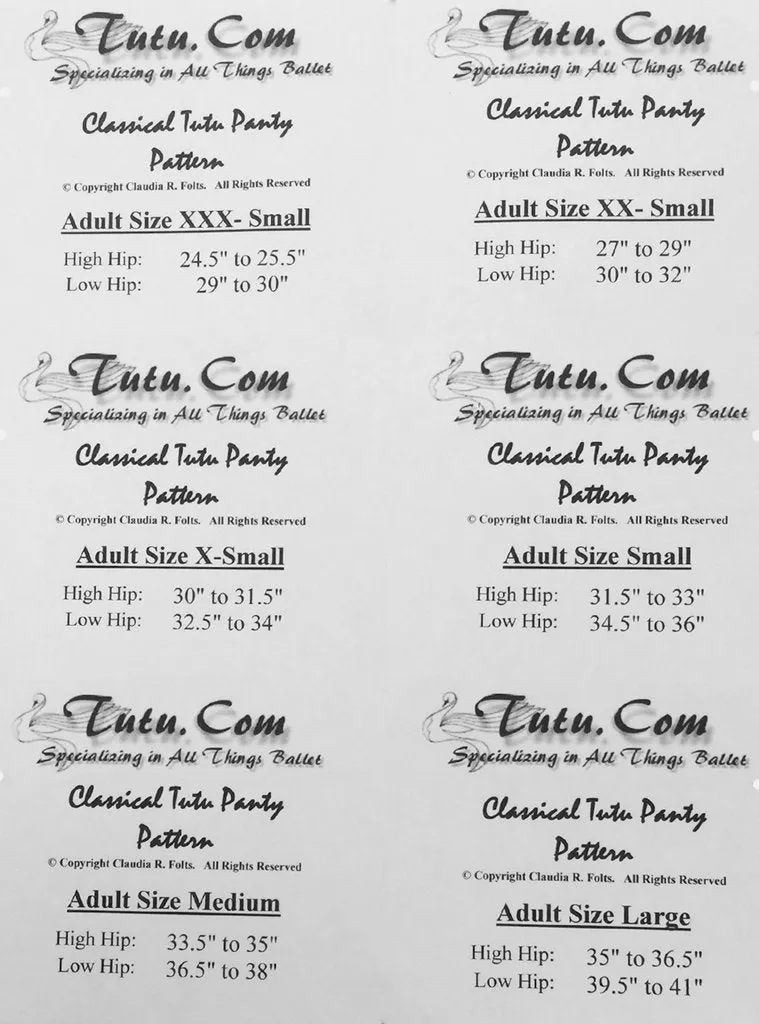 Tutu.Com
Specializing in All Things Ballet
Classical Tutu Panty
Pattern
© Copyright Claudia R. Folts. All Rights Reserved
Adult Size XXX- Small
High Hip: 24.5" to 25.5"
Low Hip: 29" to 30"
Tutu.Com
Specializing in All Things Ballet
Classical Tutu Panty
Pattern
© Copyright Claudia R. Folts. All Rights Reserved
Adult Size XX- Small
High Hip: 27" to 29"
Low Hip: 30" to 32"
Tutu.Com
Specializing in All Things Ballet
Classical Tutu Panty
Pattern
© Copyright Claudia R. Folts. All Rights Reserved
Adult Size X-Small
High Hip: 30" to 31.5"
Low Hip: 32.5" to 34"
Tutu.Com
Specializing in All Things Ballet
Classical Tutu Panty
Pattern
© Copyright Claudia R. Folts. All Rights Reserved
Adult Size Small
High Hip: 31.5" to 33"
Low Hip: 34.5" to 36"
Tutu.Com
Specializing in All Things Ballet
Classical Tutu Panty
Pattern
© Copyright Claudia R. Folts. All Rights Reserved
Adult Size Medium
High Hip: 33.5" to 35"
Low Hip: 36.5" to 38"
Tutu.Com
Specializing in All Things Ballet
Classical Tutu Panty
Pattern
© Copyright Claudia R. Folts. All Rights Reserved
Adult Size Large
High Hip: 35" to 36.5"
Low Hip: 39.5" to 41"